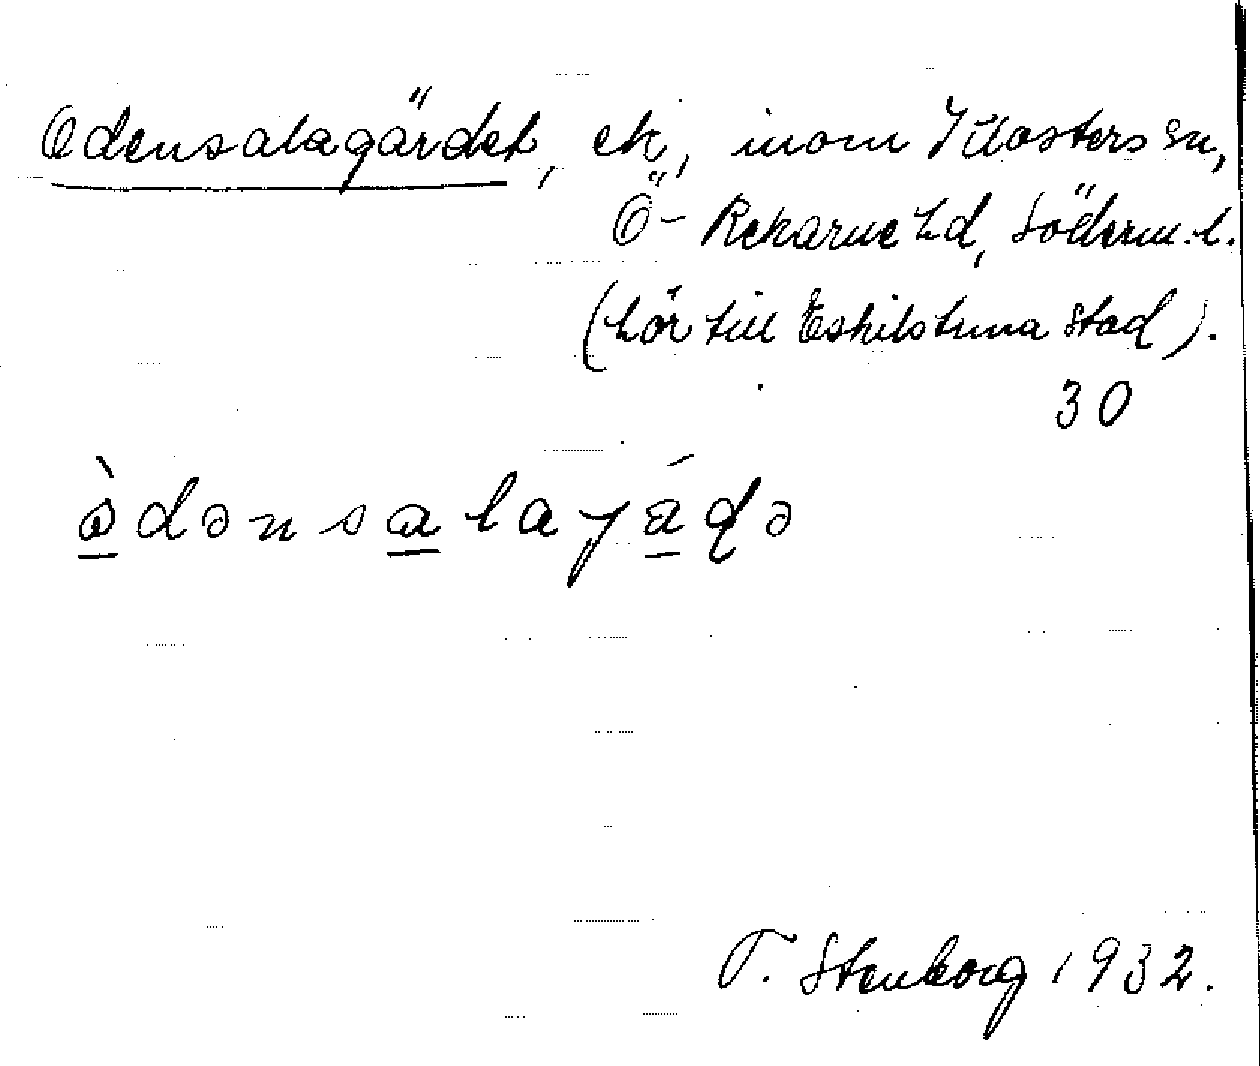 Odensalagärdet, ek, inom Klosters sn,
Ö- Rekarne hd, Söderm. l.
(hör till Eskilstuna stad).
30
ò̲dənsa̲layá̲ɖə
T. Stenborg 1932.